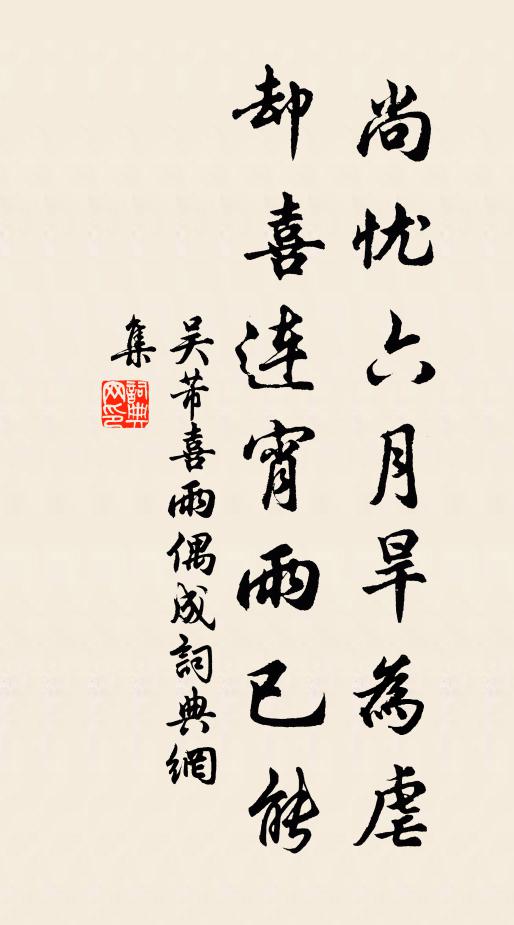 尚忧六月旱為虐
却喜连宵雨已能
吴芾喜雨偶成詞典網
集
詞典网印